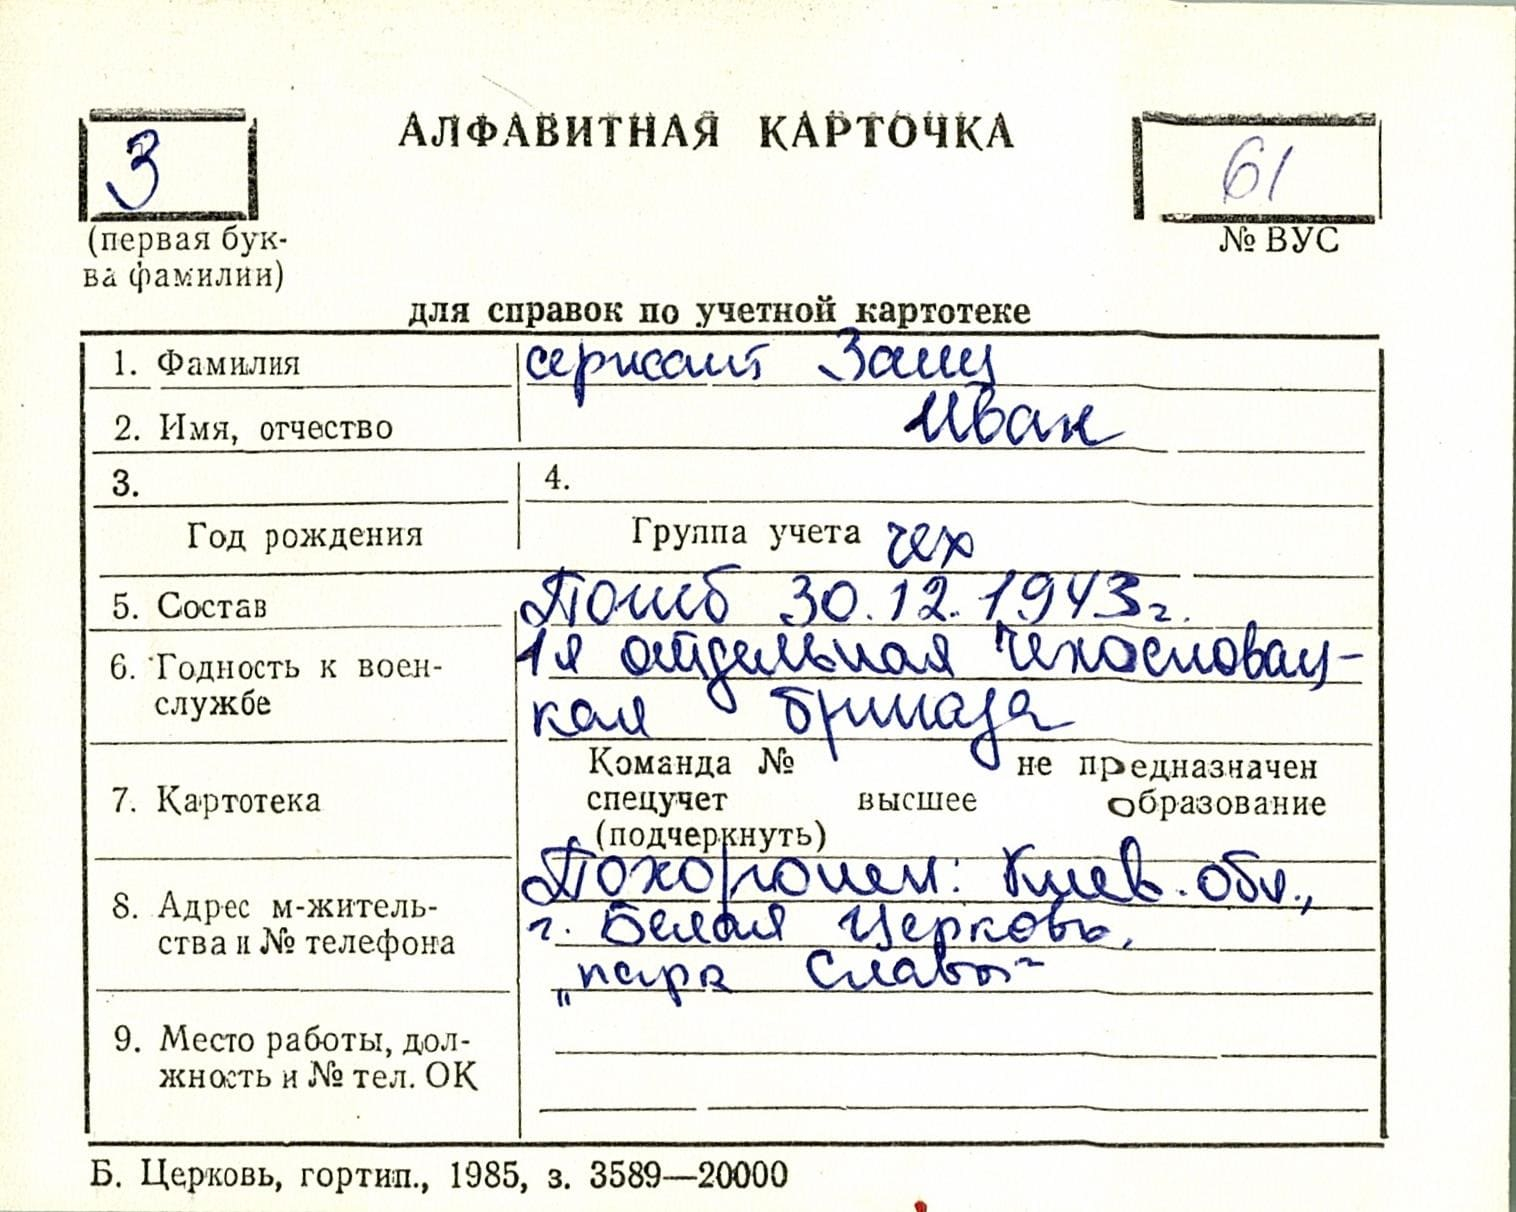 З
АЛФАВИТНАЯ КАРТОЧКА
61
(первая бук-
ва фамилии)
№ ВУС
для справок по учетной картотеке
1. Фамилия сержант
2. Имя, отчество Иван
3. 4.
Год рождения Группа учета чех
5. Состав Погиб 30.12.1943г.
6. Годность к воен- 1я отдельная Чехословац-
службе кая бригада
Команда № не предназначен
7. Картотека спецучет высшее образование
(подчеркнуть)
Похоронен: Киев. обл.,
8. Адрес м-житель- г. Белая Церковь,
ства и № телефона „парк Славы"
9. Место работы, дол-
жность и № тел. ОК
Б. Церковь, гортип., 1985, з. 3589—20000